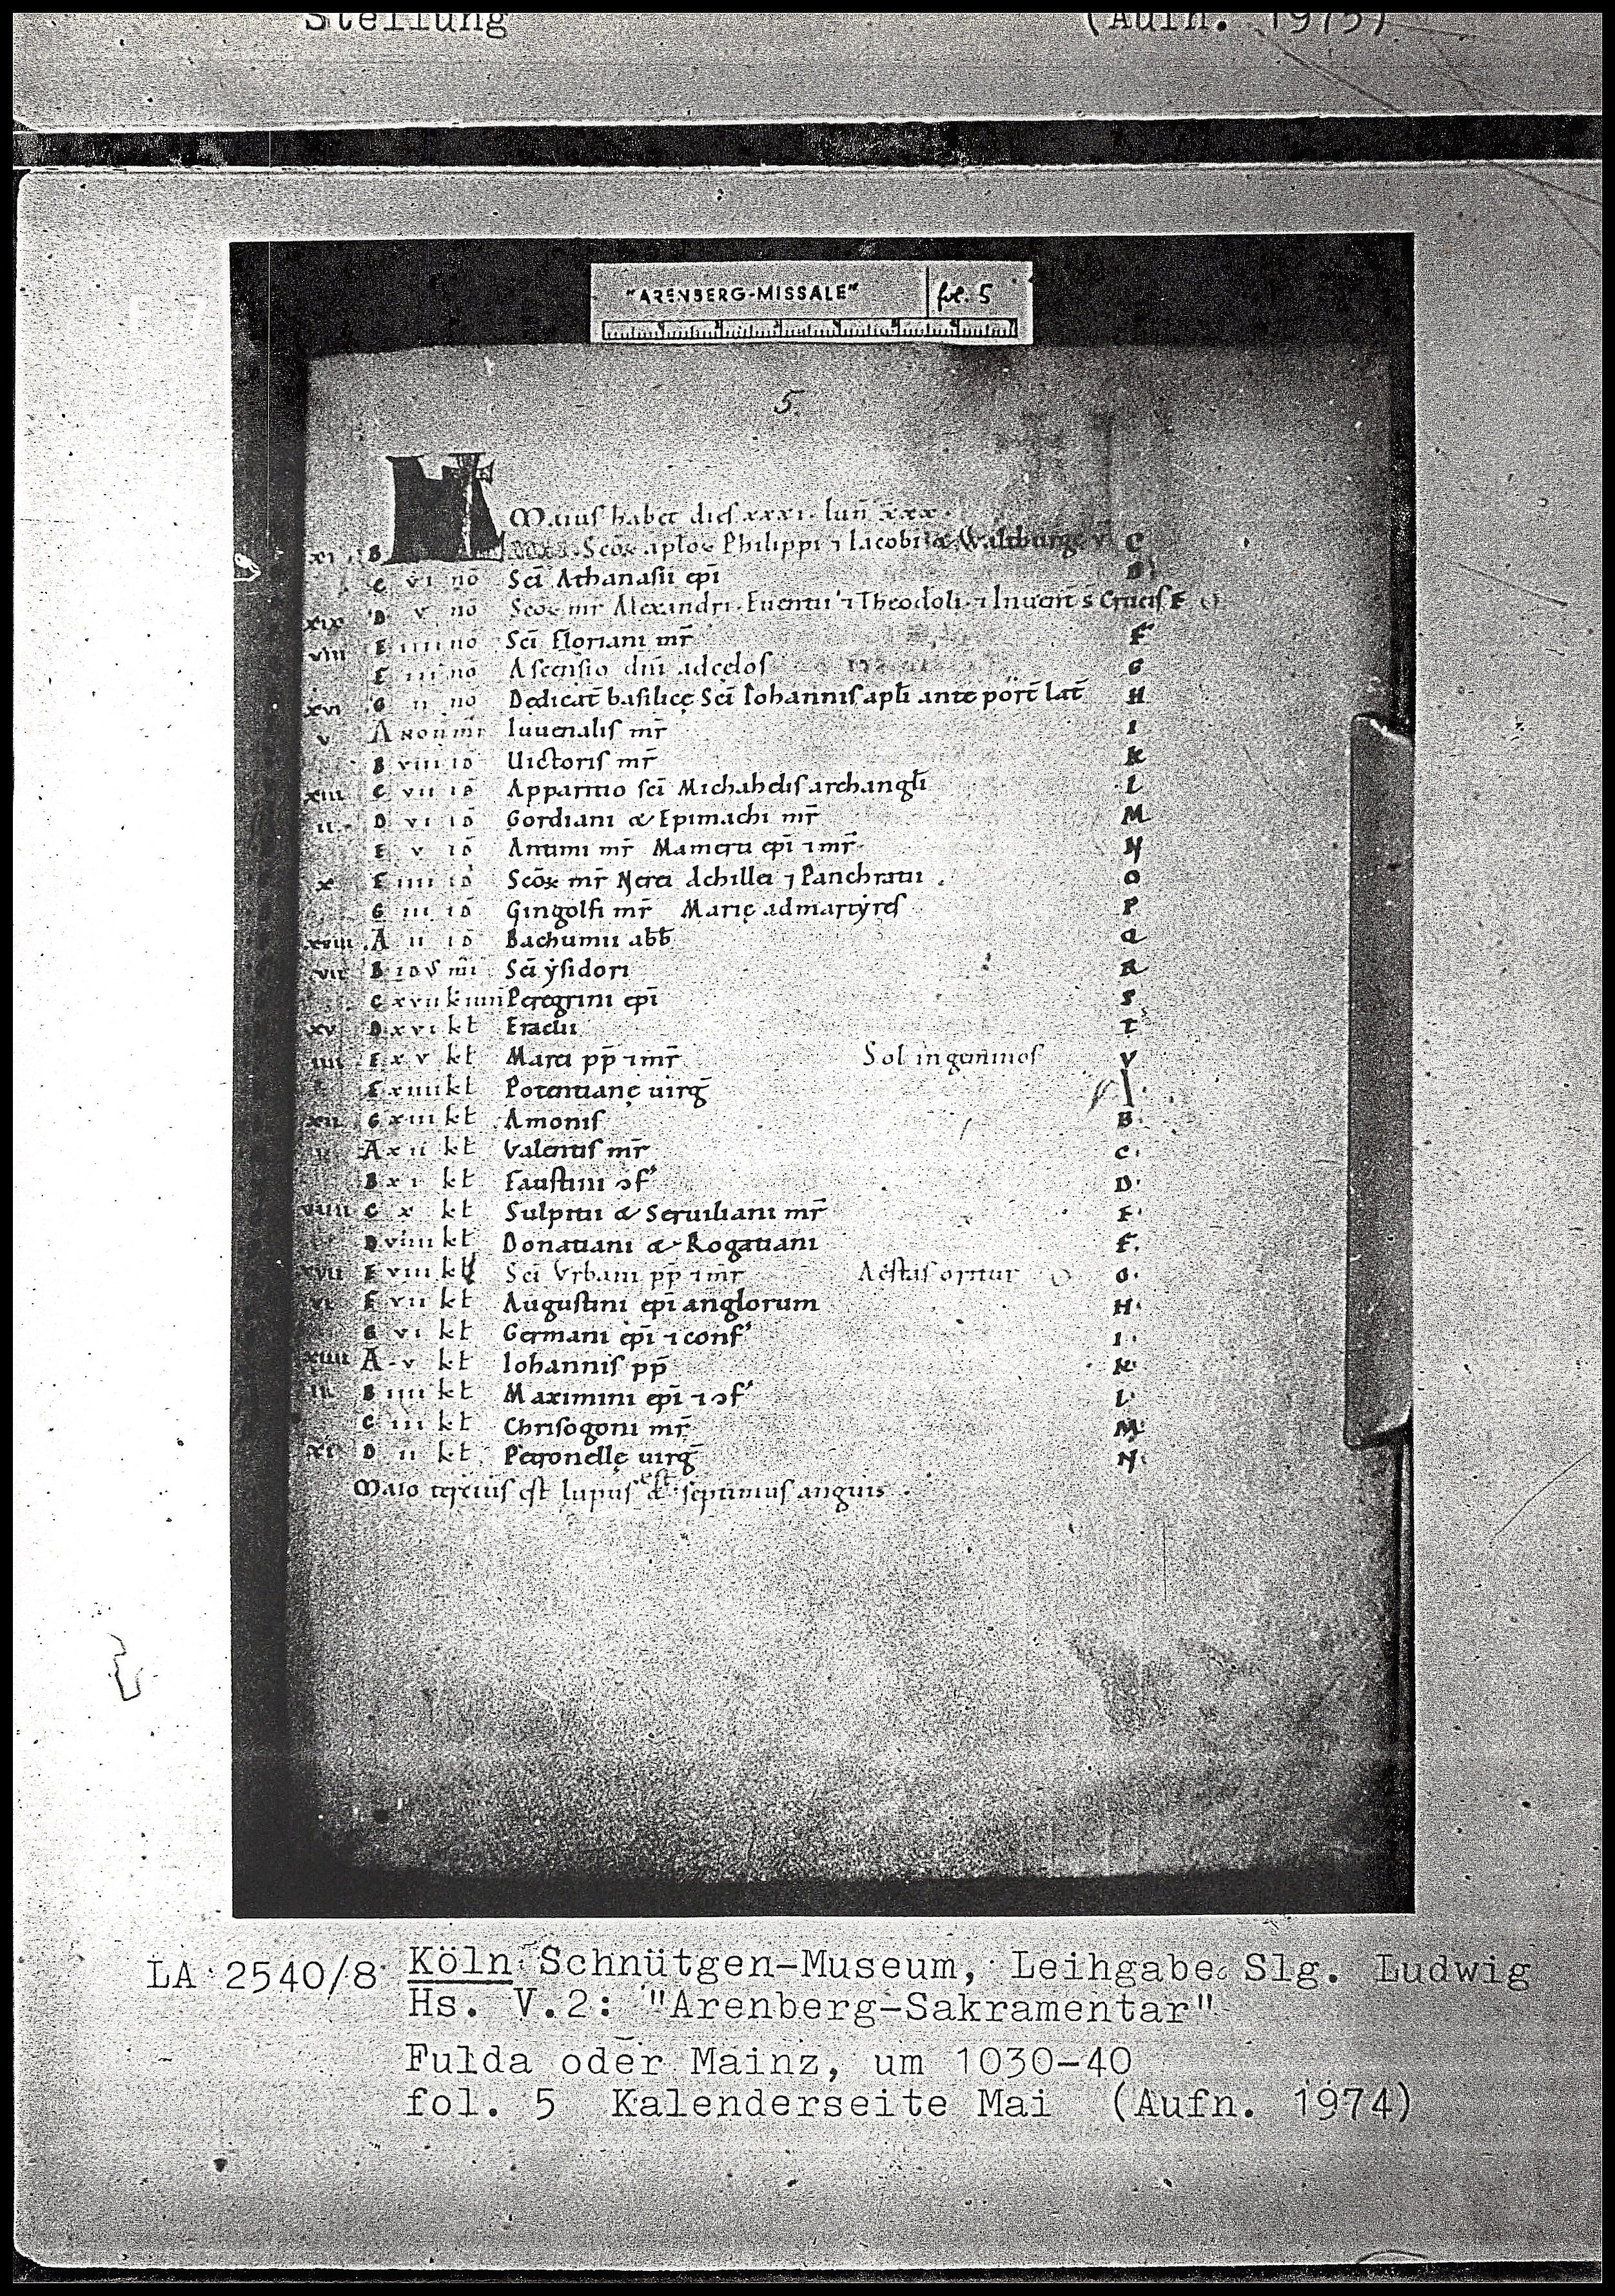 Stellung (Aufn. 1975)
"ARENBERG-MISSALE" fol. 5
5
Maius habet dies xxxi. lun̄ xxx.
xi B Scōꝝ aploꝝ Philippi ⁊ Iacobi & Waltburge v̄ C
C vi nō Scī Athanasii ep̄i D
xix D v nō Scōꝝ mr̄ Alexandri. Euentii ⁊ Theodoli. ⁊ Inuent̄ s Crucis E
viii E iiii no Scī Floriani mr̄ F
F iii no Ascensio dn̄i ad cęlos G
xvi G ii no Dedicat̄ basilicę Scī Iohannis apl̄i ante port̄ lat̄ H
v A Non mr Iuuenalis mr̄ I
B viii id Uictoris mr̄ K
xiii C vii id Apparitio scī Michahelis archangl̄i L
ii D vi id Gordiani & Epimachi mr̄ M
E v id Antimi mr̄ Mamerti ep̄i ⁊ mr̄ N
x F iiii id Scōꝝ mr̄ Nerei Achillei ⁊ Panchratii O
G iii id Gingolfi mr̄ Marię ad martyres P
xviii A ii id Bachumii abb̄ Q
vii B idus mi Scī ysidori R
C xvii k iuni Peregrini ep̄i S
xv D xvi kł Eradii T
iiii E xv kł Marci pp̄ ⁊ mr̄ Sol in geminos V
F xiiii kł Potentianę uirḡ A
xii G xiii kł Amonis B
A xii kł Valentis mr̄ C
B xi kł Faustini ɔf' D
viiii C x kł Sulpitii & Seruiliani mr̄ E
D viiii kł Donatiani & Rogatiani F
xvii E viii kł Scī Vrbani pp̄ ⁊ mr̄ Aestas oritur G
vi F vii kł Augustini ep̄i anglorum H
G vi kł Germani ep̄i ⁊ conf' I
xiiii A v kł Iohannis pp̄ K
iii B iiii kł Maximini ep̄i ⁊ ɔf' L
C iii kł Chrisogoni mr̄ M
xi D ii kł Petronellę uirḡ N
Maio tercius est lupus est & septimus anguis.
LA 2540/8 Köln Schnütgen-Museum, Leihgabe Slg. Ludwig
Hs. V.2: "Arenberg-Sakramentar"
Fulda oder Mainz, um 1030-40
fol. 5 Kalenderseite Mai (Aufn. 1974)